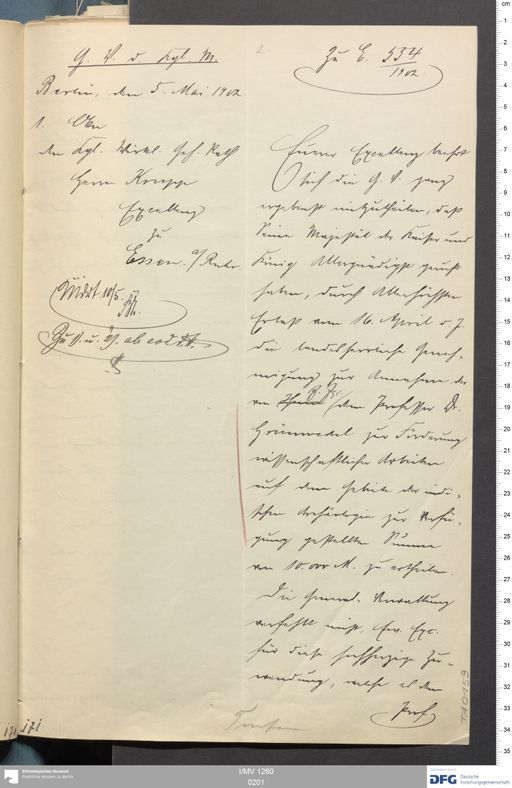 G. V. d. Kgl. M.
Berlin, den 5. Mai 1902
1. An
den Kgl. Wirkl. Geh. Rath
Herrn Krupp
Excellenz
zu
Essen a/Ruhr.
zu E. 534
1902.
2.
Euerer Excellenz beehrt
sich die G. V. ganz
ergebenst mitzutheilen, daß
Seine Majestät der Kaiser und
König Allergnädigst geruht
haben, durch Allerhöchsten
Erlaß vom 16. April d. J.
die landesherrliche Geneh-
migung zur Annahme der
von dem Professor Dr.
Grünwedel zur Förderung
wissenschaftlicher Arbeiten
auf dem Gebiete der indi-
schen Archäologie zur Verfü-
gung gestellten Summe
von 10.000 M. zu ertheilen.
Die General-Verwaltung
verfehlt nicht, Ew. Exc.
für diese hochherzige Zu-
wendung, welche es dem
Prof.
TA0159
171
Ethnologisches Museum
Staatliche Museen zu Berlin
I/MV 1260
0201
DFG
Deutsche
Forschungsgemeinschaft